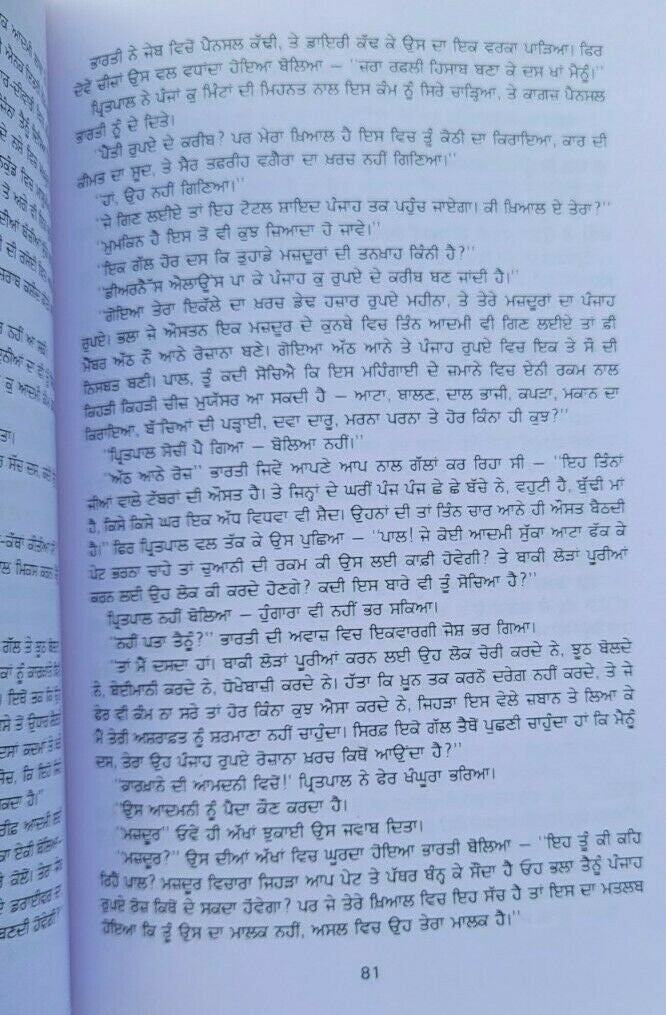 ਭਾਰਤੀ ਨੇ ਜੇਬ ਵਿਚੋਂ ਪੈਨਸਲ ਕੱਢੀ, ਤੇ ਡਾਇਰੀ ਕੱਢ ਕੇ ਉਸ ਦਾ ਇਕ ਵਰਕਾ ਪਾੜਿਆ। ਫਿਰ
ਦੋਵੇਂ ਚੀਜ਼ਾਂ ਉਸ ਵਲ ਵਧਾਂਦਾ ਹੋਇਆ ਬੋਲਿਆ – "ਜ਼ਰਾ ਰਫਲੀ ਹਿਸਾਬ ਬਣਾ ਕੇ ਦਸ ਖਾਂ ਮੈਨੂੰ।"
ਪ੍ਰਿਤਪਾਲ ਨੇ ਪੰਜਾਂ ਕੁ ਮਿੰਟਾਂ ਦੀ ਮਿਹਨਤ ਨਾਲ ਇਸ ਕੰਮ ਨੂੰ ਸਿਰੇ ਚਾੜ੍ਹਿਆ, ਤੇ ਕਾਗਜ਼ ਪੈਨਸਲ
ਭਾਰਤੀ ਨੂੰ ਦੇ ਦਿਤੇ।
"ਪੈਂਤੀ ਰੁਪਏ ਦੇ ਕਰੀਬ? ਪਰ ਮੇਰਾ ਖ਼ਿਆਲ ਹੈ ਇਸ ਵਿਚ ਤੂੰ ਕੋਠੀ ਦਾ ਕਿਰਾਇਆ, ਕਾਰ ਦੀ
ਕੀਮਤ ਦਾ ਸੂਦ, ਤੇ ਸੈਰ ਤਫ਼ਰੀਹ ਵਗ਼ੈਰਾ ਦਾ ਖ਼ਰਚ ਨਹੀਂ ਗਿਣਿਆ।"
"ਹਾਂ, ਉਹ ਨਹੀਂ ਗਿਣਿਆ।"
"ਜੇ ਗਿਣ ਲਈਏ ਤਾਂ ਇਹ ਟੋਟਲ ਸ਼ਾਇਦ ਪੰਜਾਹ ਤਕ ਪਹੁੰਚ ਜਾਏਗਾ। ਕੀ ਖ਼ਿਆਲ ਏ ਤੇਰਾ?"
"ਮੁਮਕਿਨ ਹੈ ਇਸ ਤੋਂ ਵੀ ਕੁਝ ਜ਼ਿਆਦਾ ਹੋ ਜਾਵੇ।"
"ਇਕ ਗੱਲ ਹੋਰ ਦਸ ਕਿ ਤੁਹਾਡੇ ਮਜ਼ਦੂਰਾਂ ਦੀ ਤਨਖ਼ਾਹ ਕਿੰਨੀ ਹੈ?"
"ਡੀਅਰਨੈੱਸ ਐਲਾਉਂਸ ਪਾ ਕੇ ਪੰਜਾਹ ਕੁ ਰੁਪਏ ਦੇ ਕਰੀਬ ਬਣ ਜਾਂਦੀ ਹੈ।"
"ਗੋਇਆ ਤੇਰਾ ਇਕੱਲੇ ਦਾ ਖ਼ਰਚ ਡੇਢ ਹਜ਼ਾਰ ਰੁਪਏ ਮਹੀਨਾ, ਤੇ ਤੇਰੇ ਮਜ਼ਦੂਰਾਂ ਦਾ ਪੰਜਾਹ
ਰੁਪਏ। ਭਲਾ ਜੇ ਔਸਤਨ ਇਕ ਮਜ਼ਦੂਰ ਦੇ ਕੁਨਬੇ ਵਿਚ ਤਿੰਨ ਆਦਮੀ ਵੀ ਗਿਣ ਲਈਏ ਤਾਂ ਫ਼ੀ
ਮੈਂਬਰ ਅੱਠ ਨੌਂ ਆਨੇ ਰੋਜ਼ਾਨਾ ਬਣੇ। ਗੋਇਆ ਅੱਠ ਆਨੇ ਤੇ ਪੰਜਾਹ ਰੁਪਏ ਵਿਚ ਇਕ ਤੇ ਸੌ ਦੀ
ਨਿਸਬਤ ਬਣੀ। ਪਾਲ, ਤੂੰ ਕਦੀ ਸੋਚਿਐ ਕਿ ਇਸ ਮਹਿੰਗਾਈ ਦੇ ਜ਼ਮਾਨੇ ਵਿਚ ਏਨੀ ਰਕਮ ਨਾਲ
ਕਿਹੜੀ ਕਿਹੜੀ ਚੀਜ਼ ਮੁਯੱਸਰ ਆ ਸਕਦੀ ਹੈ – ਆਟਾ, ਬਾਲਣ, ਦਾਲ ਭਾਜੀ, ਕਪੜਾ, ਮਕਾਨ ਦਾ
ਕਿਰਾਇਆ, ਬੱਚਿਆਂ ਦੀ ਪੜ੍ਹਾਈ, ਦਵਾ ਦਾਰੂ, ਮਰਨਾ ਪਰਨਾ ਤੇ ਹੋਰ ਕਿੰਨਾ ਹੀ ਕੁਝ?"
"ਪ੍ਰਿਤਪਾਲ ਸੋਚੀਂ ਪੈ ਗਿਆ – ਬੋਲਿਆ ਨਹੀਂ।"
"ਅੱਠ ਆਨੇ ਰੋਜ਼" ਭਾਰਤੀ ਜਿਵੇਂ ਆਪਣੇ ਆਪ ਨਾਲ ਗੱਲਾਂ ਕਰ ਰਿਹਾ ਸੀ – "ਇਹ ਤਿੰਨਾਂ
ਜੀਆਂ ਵਾਲੇ ਟੱਬਰਾਂ ਦੀ ਔਸਤ ਹੈ। ਤੇ ਜਿਨ੍ਹਾਂ ਦੇ ਘਰੀਂ ਪੰਜ ਪੰਜ ਛੇ ਛੇ ਬੱਚੇ ਨੇ, ਵਹੁਟੀ ਹੈ, ਬੁੱਢੀ ਮਾਂ
ਹੈ, ਕਿਸੇ ਕਿਸੇ ਘਰ ਇਕ ਅੱਧ ਵਿਧਵਾ ਵੀ ਸ਼ੈਦ। ਉਹਨਾਂ ਦੀ ਤਾਂ ਤਿੰਨ ਚਾਰ ਆਨੇ ਹੀ ਔਸਤ ਬੈਠਦੀ
ਹੈ।" ਫਿਰ ਪ੍ਰਿਤਪਾਲ ਵਲ ਤੱਕ ਕੇ ਉਸ ਪੁਛਿਆ – "ਪਾਲ! ਜੇ ਕੋਈ ਆਦਮੀ ਸੁੱਕਾ ਆਟਾ ਫੱਕ ਕੇ
ਪੇਟ ਭਰਨਾ ਚਾਹੇ ਤਾਂ ਚੁਆਨੀ ਦੀ ਰਕਮ ਕੀ ਉਸ ਲਈ ਕਾਫ਼ੀ ਹੋਵੇਗੀ? ਤੇ ਬਾਕੀ ਲੋੜਾਂ ਪੂਰੀਆਂ
ਕਰਨ ਲਈ ਉਹ ਲੋਕ ਕੀ ਕਰਦੇ ਹੋਣਗੇ? ਕਦੀ ਇਸ ਬਾਰੇ ਵੀ ਤੂੰ ਸੋਚਿਆ ਹੈ?"
ਪ੍ਰਿਤਪਾਲ ਨਹੀਂ ਬੋਲਿਆ – ਹੁੰਗਾਰਾ ਵੀ ਨਹੀਂ ਭਰ ਸਕਿਆ।
"ਨਹੀਂ ਪਤਾ ਤੈਨੂੰ?" ਭਾਰਤੀ ਦੀ ਅਵਾਜ਼ ਵਿਚ ਇਕਵਾਰਗੀ ਜੋਸ਼ ਭਰ ਗਿਆ।
"ਤਾਂ ਮੈਂ ਦਸਦਾ ਹਾਂ। ਬਾਕੀ ਲੋੜਾਂ ਪੂਰੀਆਂ ਕਰਨ ਲਈ ਉਹ ਲੋਕ ਚੋਰੀ ਕਰਦੇ ਨੇ, ਝੂਠ ਬੋਲਦੇ
ਨੇ, ਬੇਈਮਾਨੀ ਕਰਦੇ ਨੇ, ਧੋਖੇਬਾਜ਼ੀ ਕਰਦੇ ਨੇ। ਹੱਤਾ ਕਿ ਖ਼ੂਨ ਤਕ ਕਰਨੋਂ ਦਰੇਗ਼ ਨਹੀਂ ਕਰਦੇ, ਤੇ ਜੇ
ਫੇਰ ਵੀ ਕੰਮ ਨਾ ਸਰੇ ਤਾਂ ਹੋਰ ਕਿੰਨਾ ਕੁਝ ਐਸਾ ਕਰਦੇ ਨੇ, ਜਿਹੜਾ ਇਸ ਵੇਲੇ ਜ਼ਬਾਨ ਤੇ ਲਿਆ ਕੇ
ਮੈਂ ਤੇਰੀ ਅਸ਼ਰਾਫ਼ਤ ਨੂੰ ਸ਼ਰਮਾਣਾ ਨਹੀਂ ਚਾਹੁੰਦਾ। ਸਿਰਫ਼ ਇਕੋ ਗੱਲ ਤੈਥੋਂ ਪੁਛਣੀ ਚਾਹੁੰਦਾ ਹਾਂ ਕਿ ਮੈਨੂੰ
ਦਸ, ਤੇਰਾ ਉਹ ਪੰਜਾਹ ਰੁਪਏ ਰੋਜ਼ਾਨਾ ਖ਼ਰਚ ਕਿਥੋਂ ਆਉਂਦਾ ਹੈ?"
"ਕਾਰਖ਼ਾਨੇ ਦੀ ਆਮਦਨੀ ਵਿਚੋਂ!" ਪ੍ਰਿਤਪਾਲ ਨੇ ਫੇਰ ਖੰਘੂਰਾ ਭਰਿਆ।
"ਉਸ ਆਦਮਨੀ ਨੂੰ ਪੈਦਾ ਕੌਣ ਕਰਦਾ ਹੈ।
"ਮਜ਼ਦੂਰ" ਓਵੇਂ ਹੀ ਅੱਖਾਂ ਝੁਕਾਈ ਉਸ ਜਵਾਬ ਦਿਤਾ।
"ਮਜ਼ਦੂਰ?" ਉਸ ਦੀਆਂ ਅੱਖਾਂ ਵਿਚ ਘੂਰਦਾ ਹੋਇਆ ਭਾਰਤੀ ਬੋਲਿਆ – "ਇਹ ਤੂੰ ਕੀ ਕਹਿ
ਰਿਹੋਂ ਪਾਲ? ਮਜ਼ਦੂਰ ਵਿਚਾਰਾ ਜਿਹੜਾ ਆਪ ਪੇਟ ਤੇ ਪੱਥਰ ਬੰਨ੍ਹ ਕੇ ਸੌਂਦਾ ਹੈ ਓਹ ਭਲਾ ਤੈਨੂੰ ਪੰਜਾਹ
ਰੁਪਏ ਰੋਜ਼ ਕਿਥੋਂ ਦੇ ਸਕਦਾ ਹੋਵੇਗਾ? ਪਰ ਜੇ ਤੇਰੇ ਖ਼ਿਆਲ ਵਿਚ ਇਹ ਸੱਚ ਹੈ ਤਾਂ ਇਸ ਦਾ ਮਤਲਬ
ਹੋਇਆ ਕਿ ਤੂੰ ਉਸ ਦਾ ਮਾਲਕ ਨਹੀਂ, ਅਸਲ ਵਿਚ ਉਹ ਤੇਰਾ ਮਾਲਕ ਹੈ।"
81